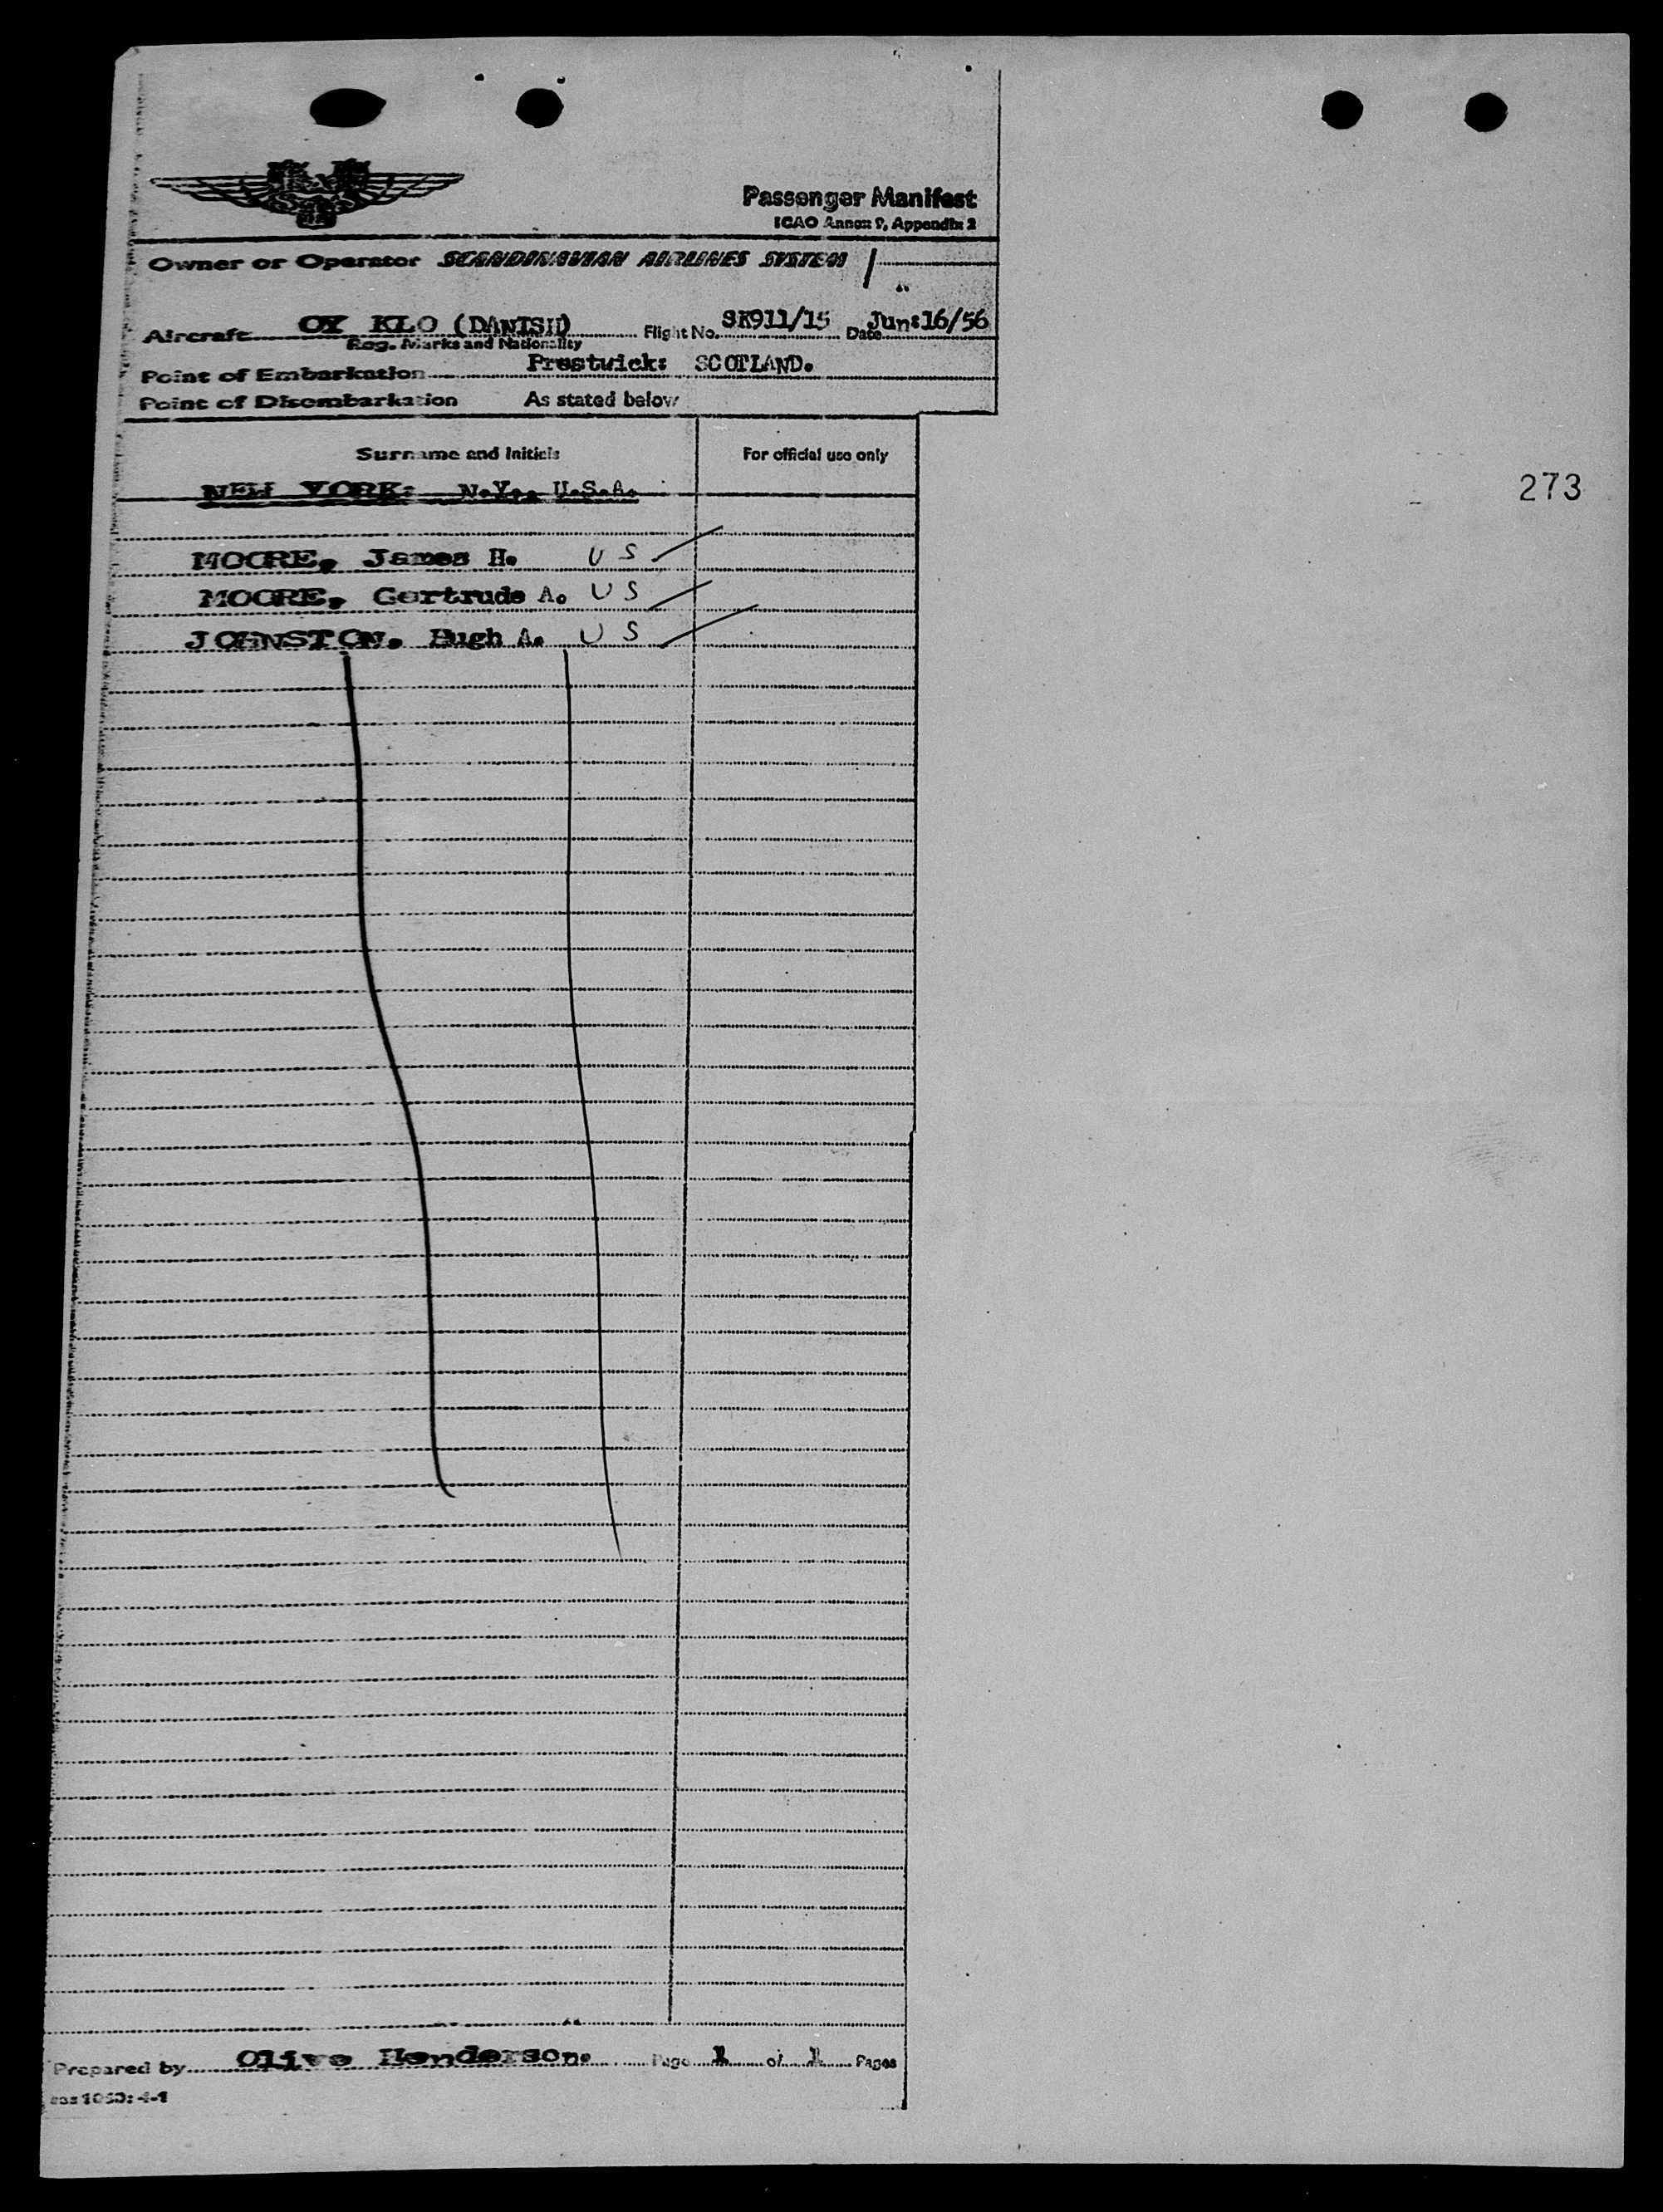 SAS
Passenger Manifest
ICAO Annex 9, Appendix 2
Owner or Operator SCANDINAVIAN AIRLINES SYSTEM
Aircraft OY KLO (DANISH) Flight No. SK911/15 Date Jun:16/56
Reg. Marks and Nationality
Point of Embarkation Prestwick: SCOTLAND.
Point of Disembarkation As stated below
Surname and Initials For official use only
NEW YORK: N.Y., U.S.A.
273
MOORE, James H. US
MOORE, Gertrude A. US
JOHNSTON, Hugh A. US
Prepared by Olive Henderson. Page 1 of 1 Pages